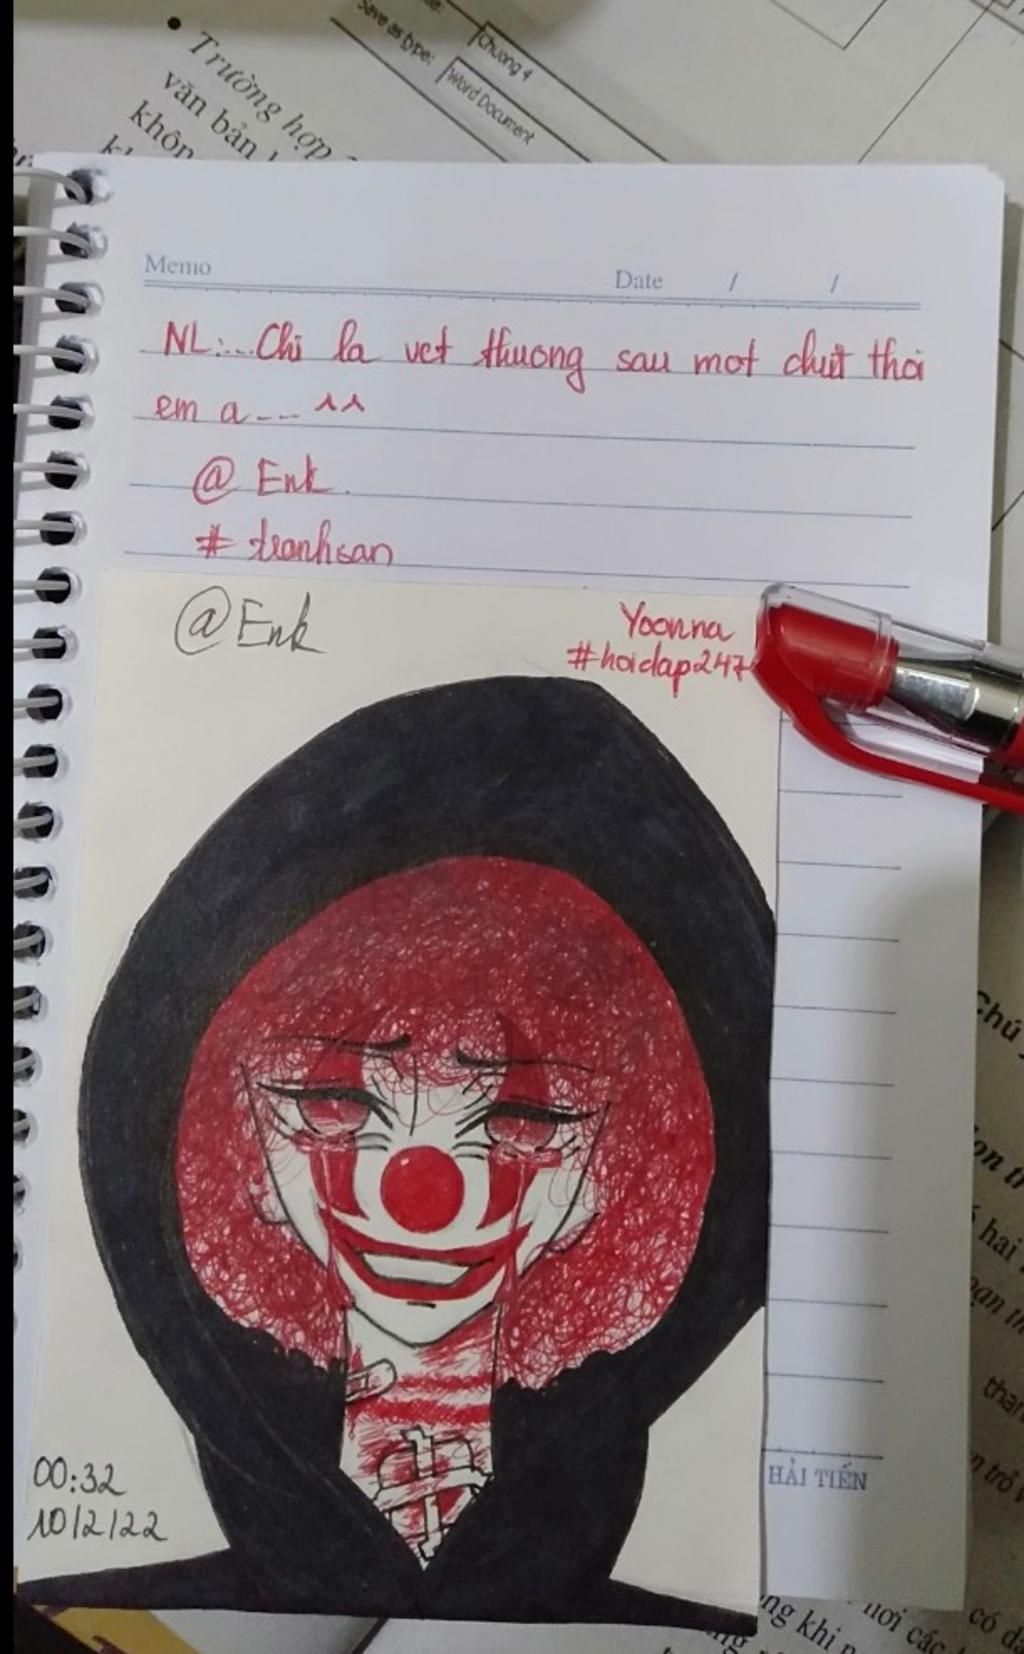 Save as type:
Chuong 4
Word Document
• Trường hợp
văn bản
khôn
Memo
Date / /
NL:...Chi la vet thuong sau mot chut thoi
em a... ^^
@ Enk.
# tranhsan
@Enk
Yoonna
#hoidap247
Chú
hai
00:32
10/2/22
HẢI TIẾN
ng khi
nơi các
có